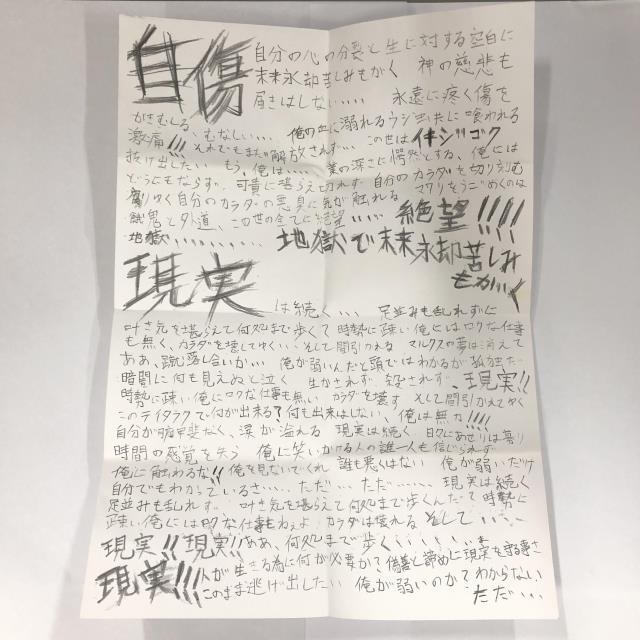 自傷
自分の心の分裂と生に対する空白に
未来永却苦しみもがく 神の慈悲も
届きはしない‥‥ 永遠に疼く傷を
かきむしる、むなしい‥‥ 俺の血に溺れるウジ虫共に喰われる
激痛!!! それでもまだ解放されず‥‥ この世はイキジゴク
抜け出したい もう、俺は‥‥ 業の深さに愕然とする、俺には
どうにもならず、可責に堪え切れず 自分のカラダを切り刻む
腐りゆく自分のカラダの悪臭に気が触れる
餓鬼と外道、この世の全てに絶望‥‥ 絶望!!!!
地獄‥‥‥‥ 地獄で未来永却苦しみ
もがく
現実
は続く‥‥ 足並みも乱れずに
吐き気を堪えて何処まで歩くて 時勢に疎い俺にはロクな仕事
も無く、カラダを壊してゆく‥‥そして間引かれる マルクスの夢は消えて
ああ、蹴落し合いか‥‥ 俺が弱いんだと頭ではわかるが孤独だ
暗闇に何も見えぬと泣く 生かされず、殺されず、現実!!
時勢に疎い俺にロクな仕事も無い カラダを壊す そして間引かれてゆく
このテイタラクで何が出来る?何も出来はしない、俺は無力!!!!
自分が腑甲斐なく、涙が溢れる 現実は続く 日々にあせりは募り
時間の感覚を失う 俺に笑いかける人の誰一人も信じられず
俺に触わるな!! 俺を見ないでくれ 誰も悪くはない 俺が弱いだけ
自分でもわかっているさ‥‥ ただ‥‥ ただ‥‥‥ 現実は続く
足並みも乱れず‥‥ 吐き気を堪えて何処まで歩くんだて 時勢に
疎い俺にはロクな仕事もねぇよ カラダは壊れる そして‥‥
現実!! 現実!! ああ、何処まで歩く‥‥‥‥
現実!!! 人が生きる為に何が必要かて 偽善と諦めに現実を守る事さ
このまま逃げ出したい 俺が弱いのかてわからない
ただ‥‥